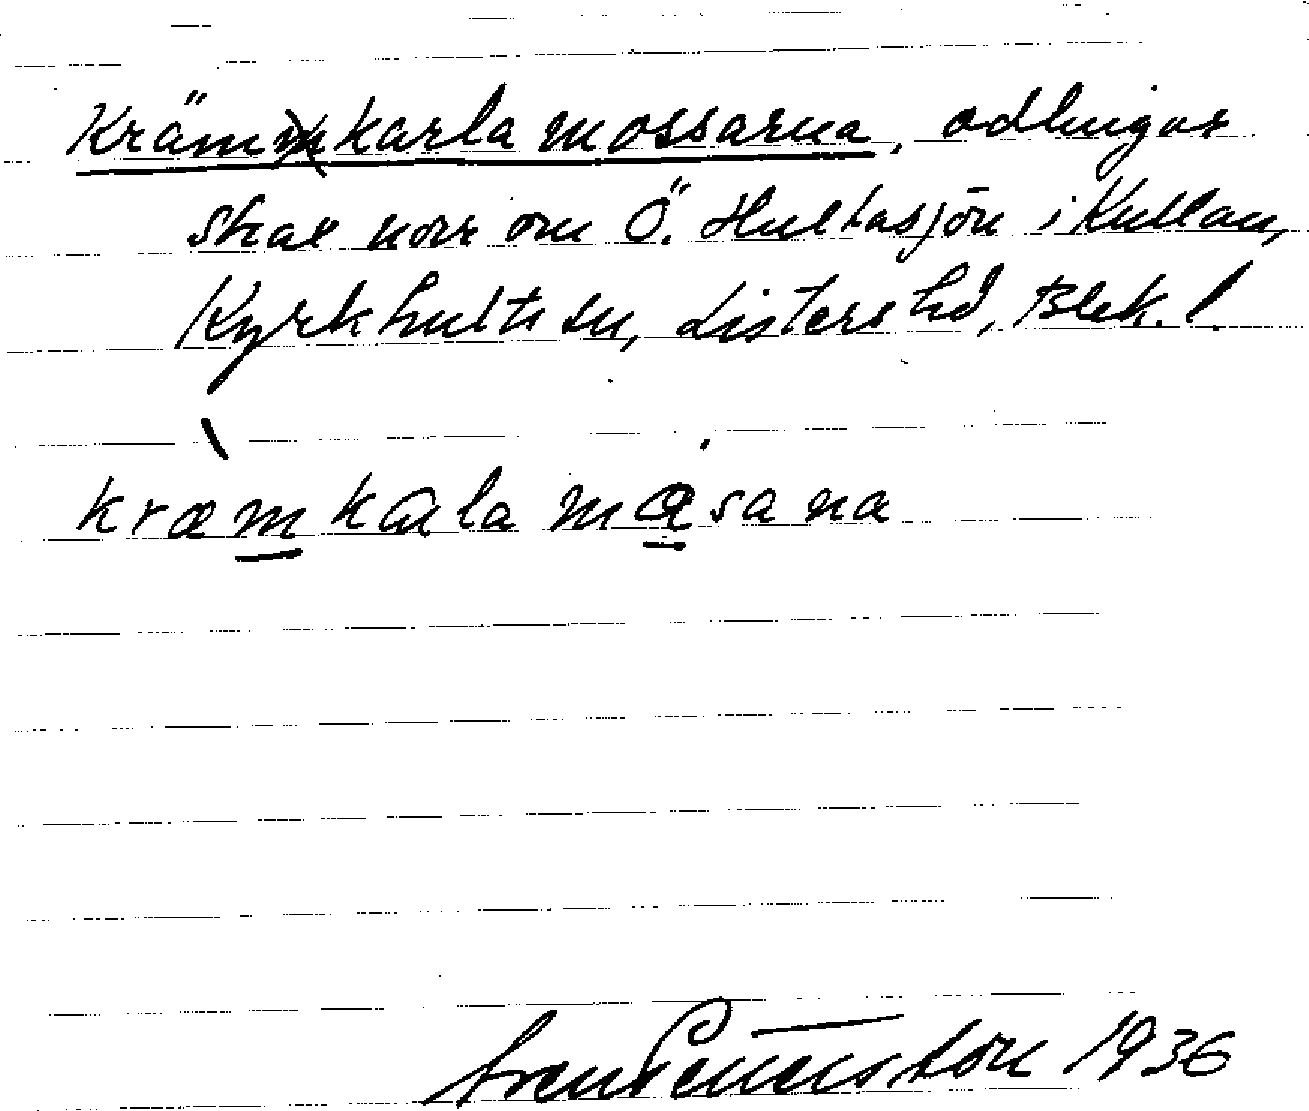 Krämkarlamossarna, odlingar
skar norr om Ö. Hultasjön i Kullan,
Kyrkhults sn, Listers hd, Blek. l.
kræm kɑla mɑsana
1936